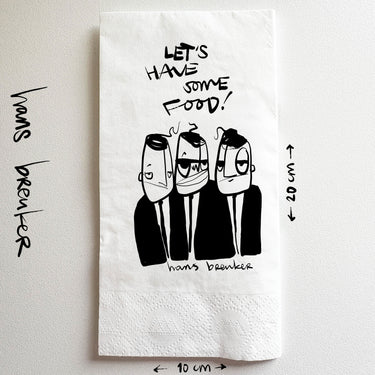 LET'S
HAVE
SOME
FOOD!
hans brenker
hans brenker
← 20 cm →
← 10 cm →